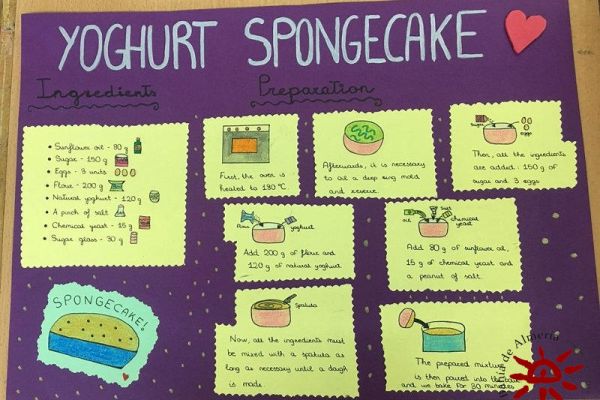 YOGHURT SPONGECAKE
Ingredients
Preparation
Sunflower oil - 80 g
Sugar - 150 g
Eggs - 3 units
Flour - 200 g
Natural yoghurt - 120 g
A pinch of salt
Chemical yeast - 15 g
Sugar glass - 30 g
First, the oven is
heated to 180 ºC
Afterwards, it is necessary
to oil a deep ring mold
and reserve.
Sugar
eggs
Then, all the ingredients
are added: 150 g of
sugar and 3 eggs
flour
yoghurt
Add 200 g of flour and
120 g of natural yoghurt.
oil
Salt
chemical
yeast
Add 80 g of sunflower oil,
15 g of chemical yeast and
a peanut of salt.
Spatula
Now, all the ingredients must
be mixed with a spatula as
long as necessary until a dough
is made.
The prepared mixture
is then poured into the
and we bake for 30 minutes
SPONGECAKE!
de Almería